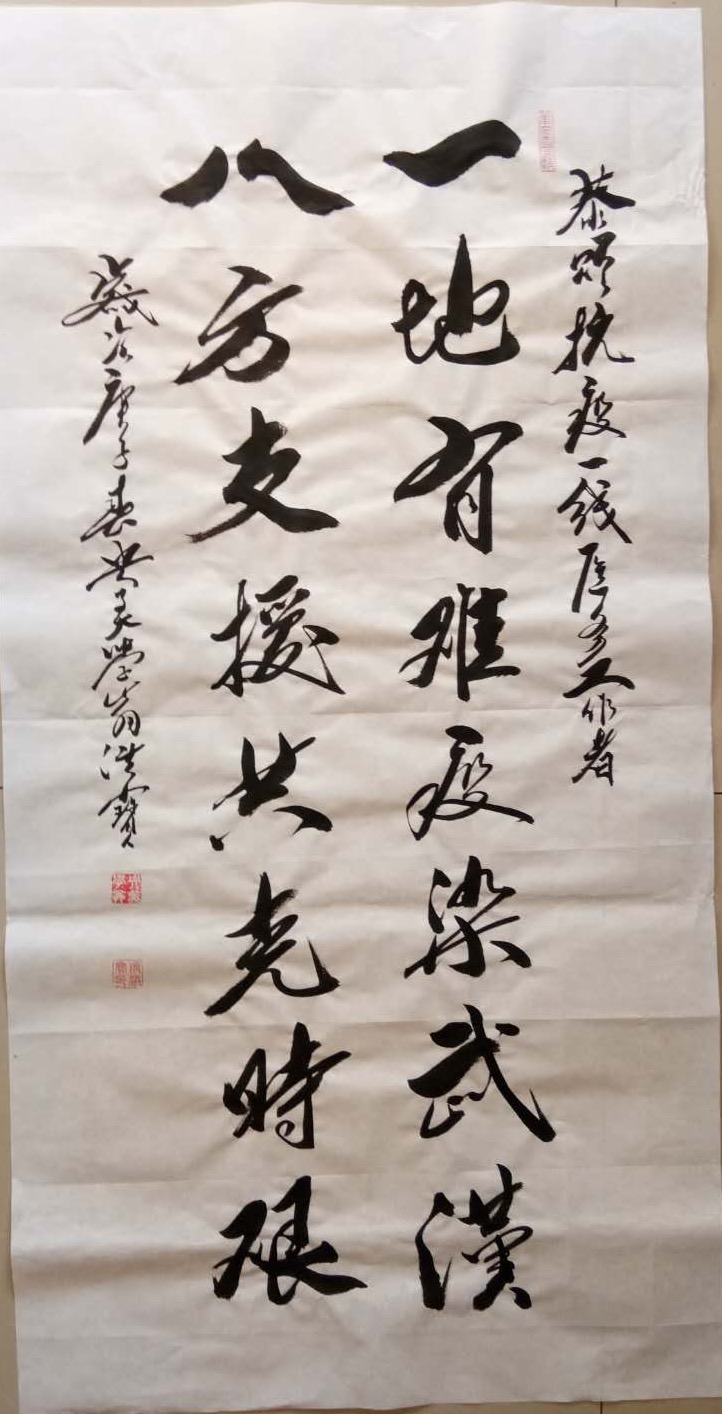 恭颂抗疫一线医务工作者
一地有难疫染武漢
八方支援共克時艰
歲次庚子春吴美学翁洪寶